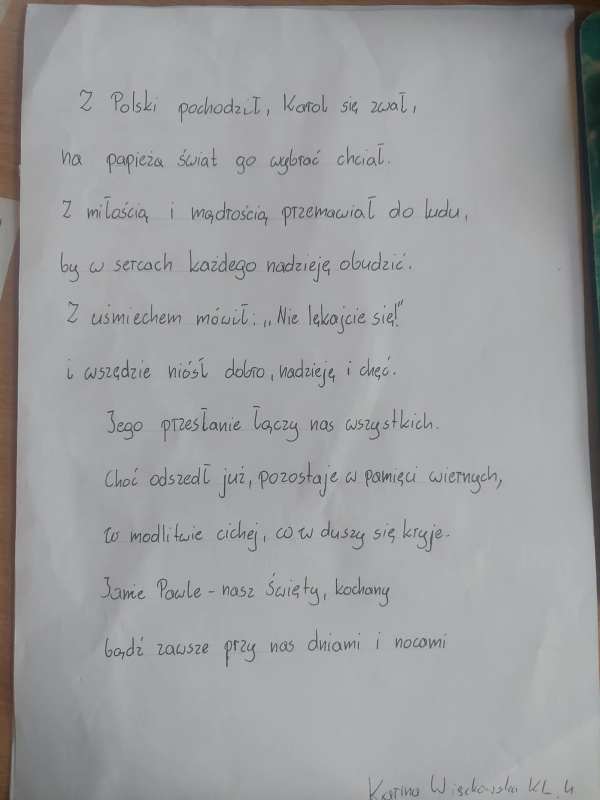 Z Polski pochodził, Karol się zwał,
na papieża świat go wybrać chciał.
Z miłością i mądrością przemawiał do ludu,
by w sercach każdego nadzieję obudzić.
Z uśmiechem mówił: „Nie lękajcie się!"
i wszędzie niósł dobro, nadzieję i chęć.
Jego przesłanie łączy nas wszystkich.
Choć odszedł już, pozostaje w pamięci wiernych,
w modlitwie cichej, co w duszy się kryje.
Janie Pawle - nasz Święty, kochany
bądź zawsze przy nas dniami i nocami
Karina KL. 4